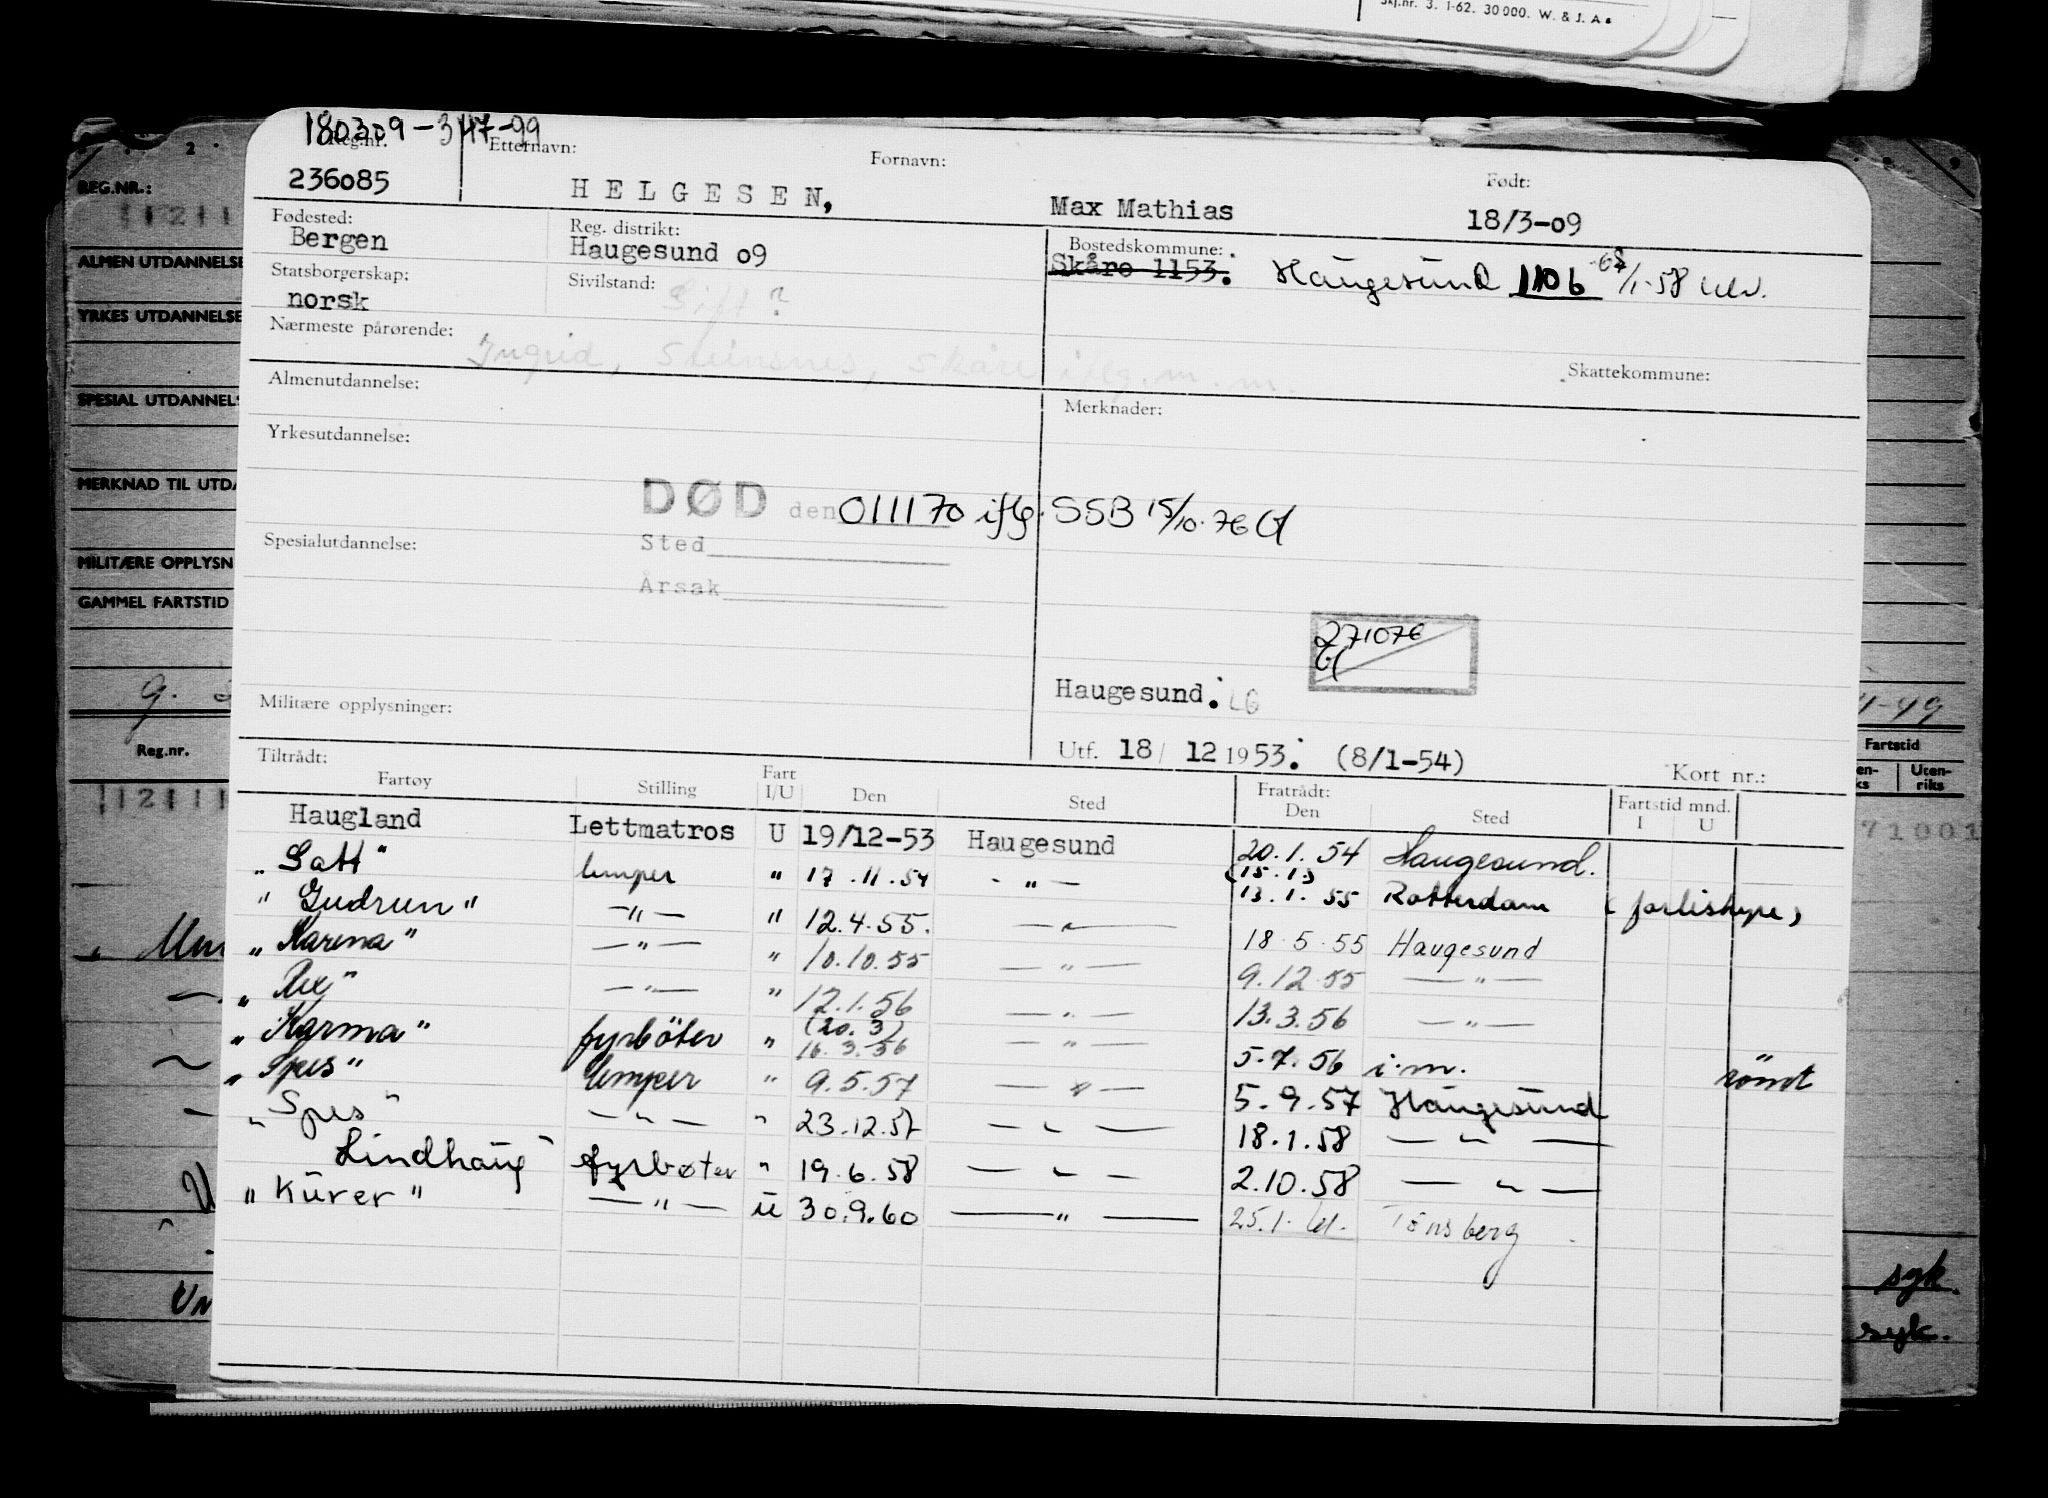 Skj.nr. 3. 1-62. 30 000. W. & J. A.
180309-34799
Reg.nr. Etternavn: Fornavn: Født:
236085 HELGESEN, Max Mathias 18/3-09
Fødested: Bergen
Reg. distrikt: Haugesund 09
Bostedskommune: Skåre 1153. Haugesund 1106 /1-58
Statsborgerskap: norsk
Sivilstand: Gift?
Nærmeste pårørende: Ingrid, Steinsnes, Skåre iflg. m.m.
Skattekommune:
Almenutdannelse:
Merknader:
Yrkesutdannelse:
DØD den 011170 iflg. SSB 15/10-76
Spesialutdannelse:
Sted
Årsak
271076
Haugesund: LG
Militære opplysninger:
Utf. 18/ 12 1953. (8/1-54)
Kort nr.:
Tiltrådt: Fratrådt: Fartstid mnd.
Fartøy Stilling Fart I/U Den Sted Den Sted I U
Haugland Lettmatros U 19/12-53 Haugesund 20.1.54 Haugesund.
"Gatt" lemper " 17.11.54 - " - (15.1) 13.1.55 Rotterdam (forlishyre)
"Gudrun" -"- " 12.4.55. -"- 18.5.55 Haugesund
"Karena" -"- " 10.10.55 -"- 9.12.55 -"-
"Rex" -"- " 12.1.56 -"- 13.3.56 -"-
"Karma" fyrböter " (20.3) 16.3.56 -"- 5.7.56 i.m. römt
"Spes" lemper " 9.5.57 -"- 5.9.57 Haugesund
"Spes" -"- " 23.12.57 -"- 18.1.58 -"-
Lindhaug" fyrbøter " 19.6.58 -"- 2.10.58 -"-
"Kurer" -"- u 30.9.60 -"- 25.1.61. Tönsberg
REG.NR.:
ALMEN UTDANNELSE
YRKES UTDANNELSE
SPESIAL UTDANNELS
MERKNAD TIL UTDA
MILITÆRE OPPLYSN
GAMMEL FARTSTID
Reg.nr.
Fartstid
en-ks Uten-riks
71001
syk.
syk.